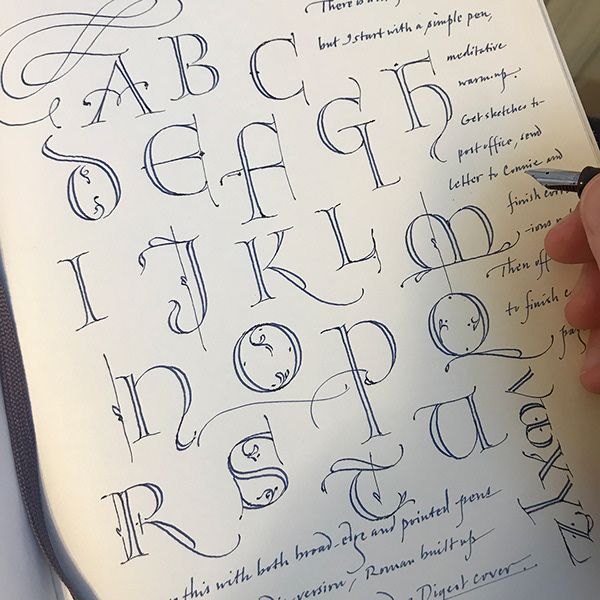 There
A B C
but I start with a simple pen,
meditative
warm-up.
D E F G H
Get sketches to
post office, send
letter to Connie and
finish
I J K L M
Then off
to finish
N O P Q
R S T U
V W X Y Z
this with both broad-edge and pointed pens
version, Roman built up
Digest cover.